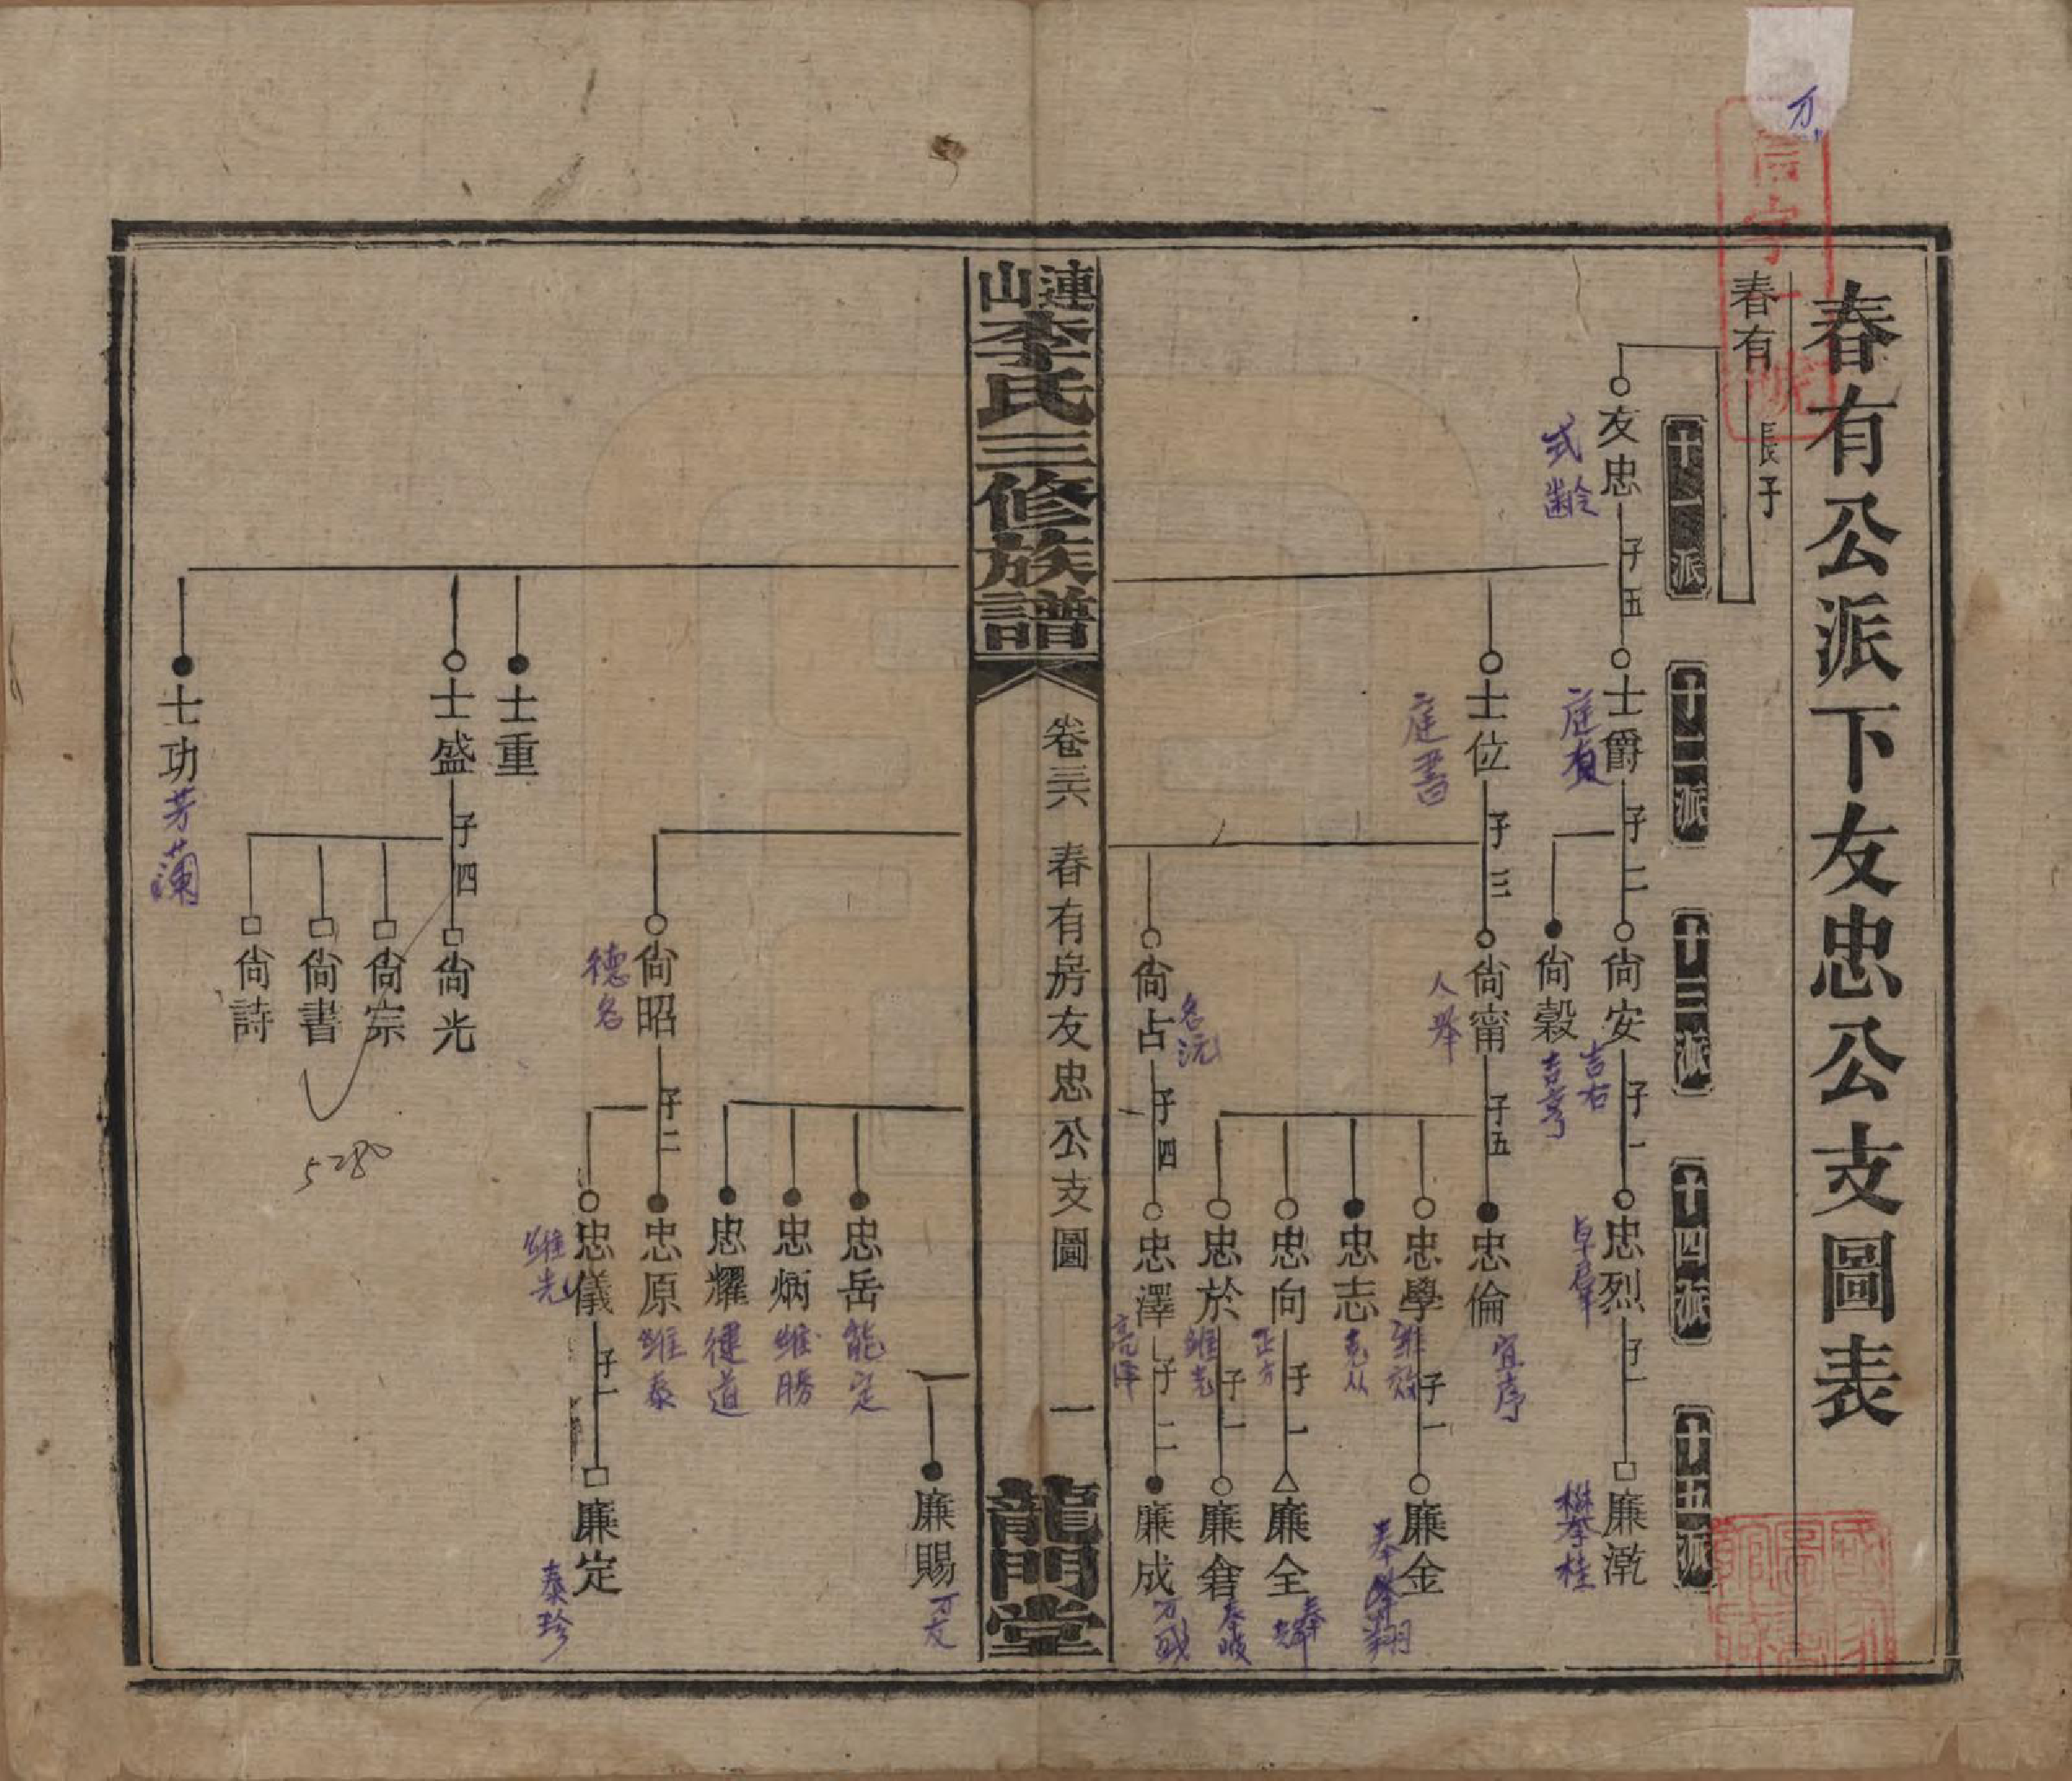 春有公派下友忠公支圖表
春有 長子
十一派
十二派
十三派
十四派
十五派
友忠 子五
式齡
士爵 子二
庭質
尙安 子一
吉右
忠烈 子一
卓犀
廉漧
攀桂
尙穀
吉亨
士位 子三
庭書
尙甯 子五
人舉
忠倫
宜序
忠學 子一
維效
廉金
奉翔
忠志
克从
忠向 子一
正方
廉全
忠於 子一
維光
廉
忠澤 子二
亮澤
廉成
尙占 子四
名沅
連山李氏三修族譜
卷三六 春有房友忠公支圖
一
龍門堂
廉賜
万友
忠岳
能定
忠炳
維勝
忠耀
健道
尙昭 子二
德名
忠原
維泰
忠儀 子一
維先
廉定
泰珍
士重
士盛 子四
尙光
尙宗
尙書
尙詩
士功
芳蘭
5280
万